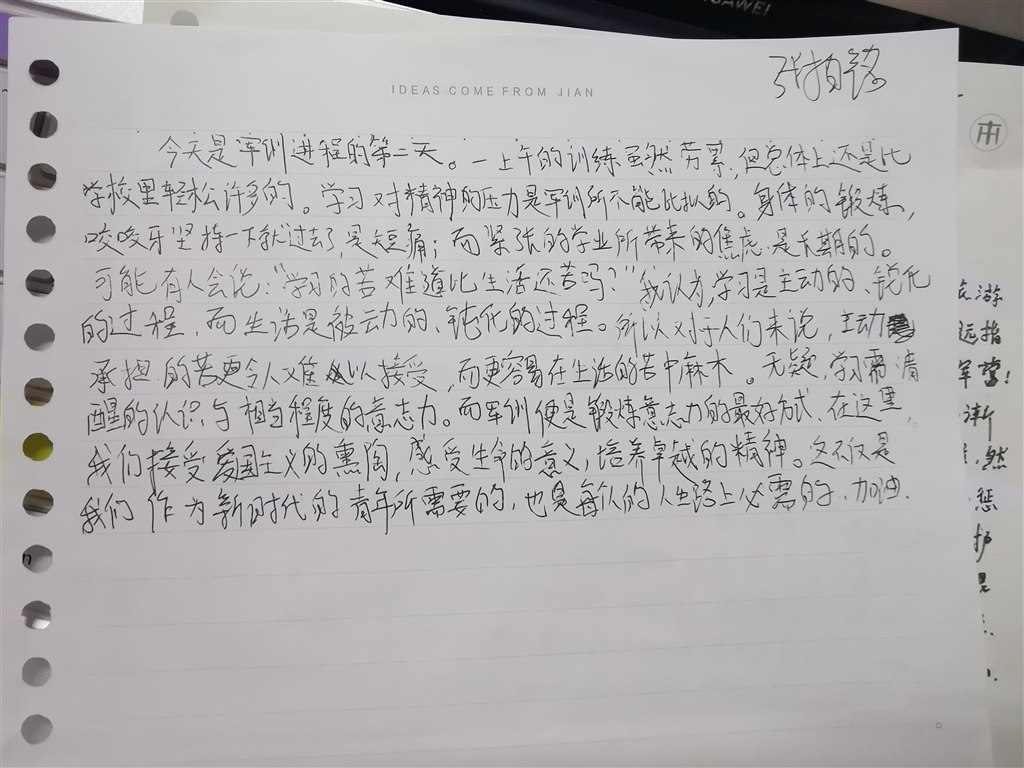 HUAWEI
张
IDEAS COME FROM JIAN
今天是军训进程的第二天。一上午的训练虽然劳累,但总体上还是比
学校里轻松许多的。学习对精神的压力是军训所不能比拟的。身体的锻炼,
咬咬牙坚持一下就过去了,是短痛;而紧张的学业所带来的焦虑是长期的。
可能有人会说:"学习的苦难道比生活还苦吗?"我认为,学习是主动的、锐化
的过程,而生活是被动的、钝化的过程。所以对于人们来说,主动
承担的苦更令人难以接受,而更容易在生活的苦中麻木。无疑,学习需清
醒的认识与相当程度的意志力。而军训便是锻炼意志力的最好方式、在这里,
我们接受爱国主义的熏陶,感受生命的意义,培养卓越的精神。这不仅是
我们作为新时代的青年所需要的,也是每人的人生路上必需的。加油.
游
远指
军营!
渐
然
惩
护